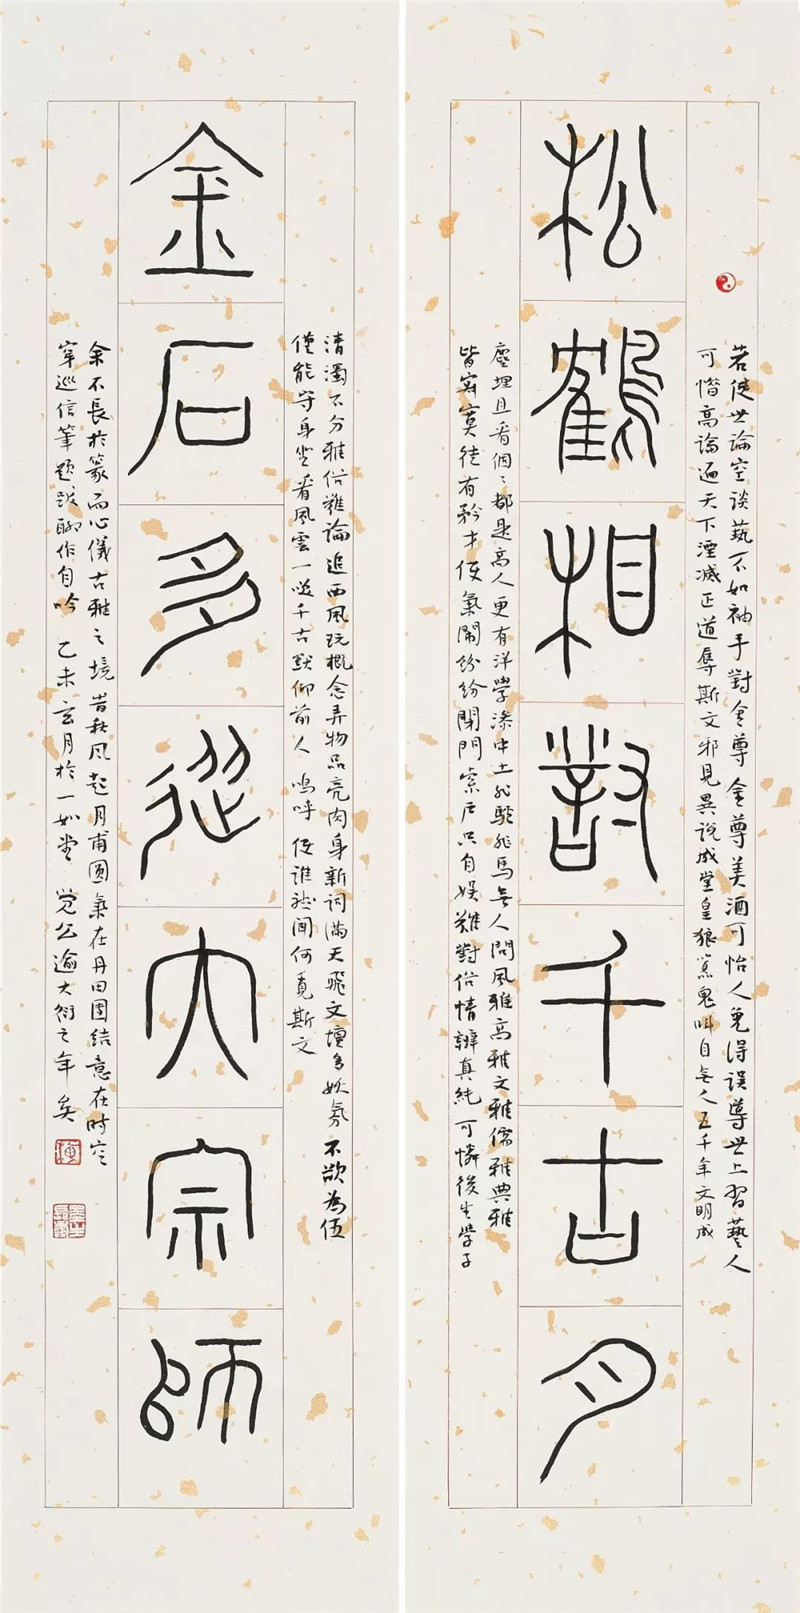 松鶴相對千古月
若使世論空談藝不如袖手對金尊金尊美酒可怡人免得誤導世上習藝人
可憎高論遍天下湮滅正道辱斯文邪見異說成堂皇狼嚎鬼叫自無人五千年文明成
塵埋且看個ミ都是高人更有洋學滲中土非驢非馬無人問風雅高雅文雅儒雅典雅
皆寂寞徒有矜才使氣鬧紛紛閉門索居只自娛難對俗情辯真純可憐後生學子
金石多從大宗師
清濁不分雅俗難論追西風玩概念弄物品亮肉身新詞滿天飛文壇多妖氛不欲為伍
僅能守身坐看風雲一嘆千古默仰前人嗚呼使誰能聞何覓斯文
余不長於篆而心儀古雅之境昔秋風起月甫圓氣在丹田固結意在時空
穿巡信筆題跋聊作自吟 乙未玄月於一如堂 覺公逾大衍之年矣